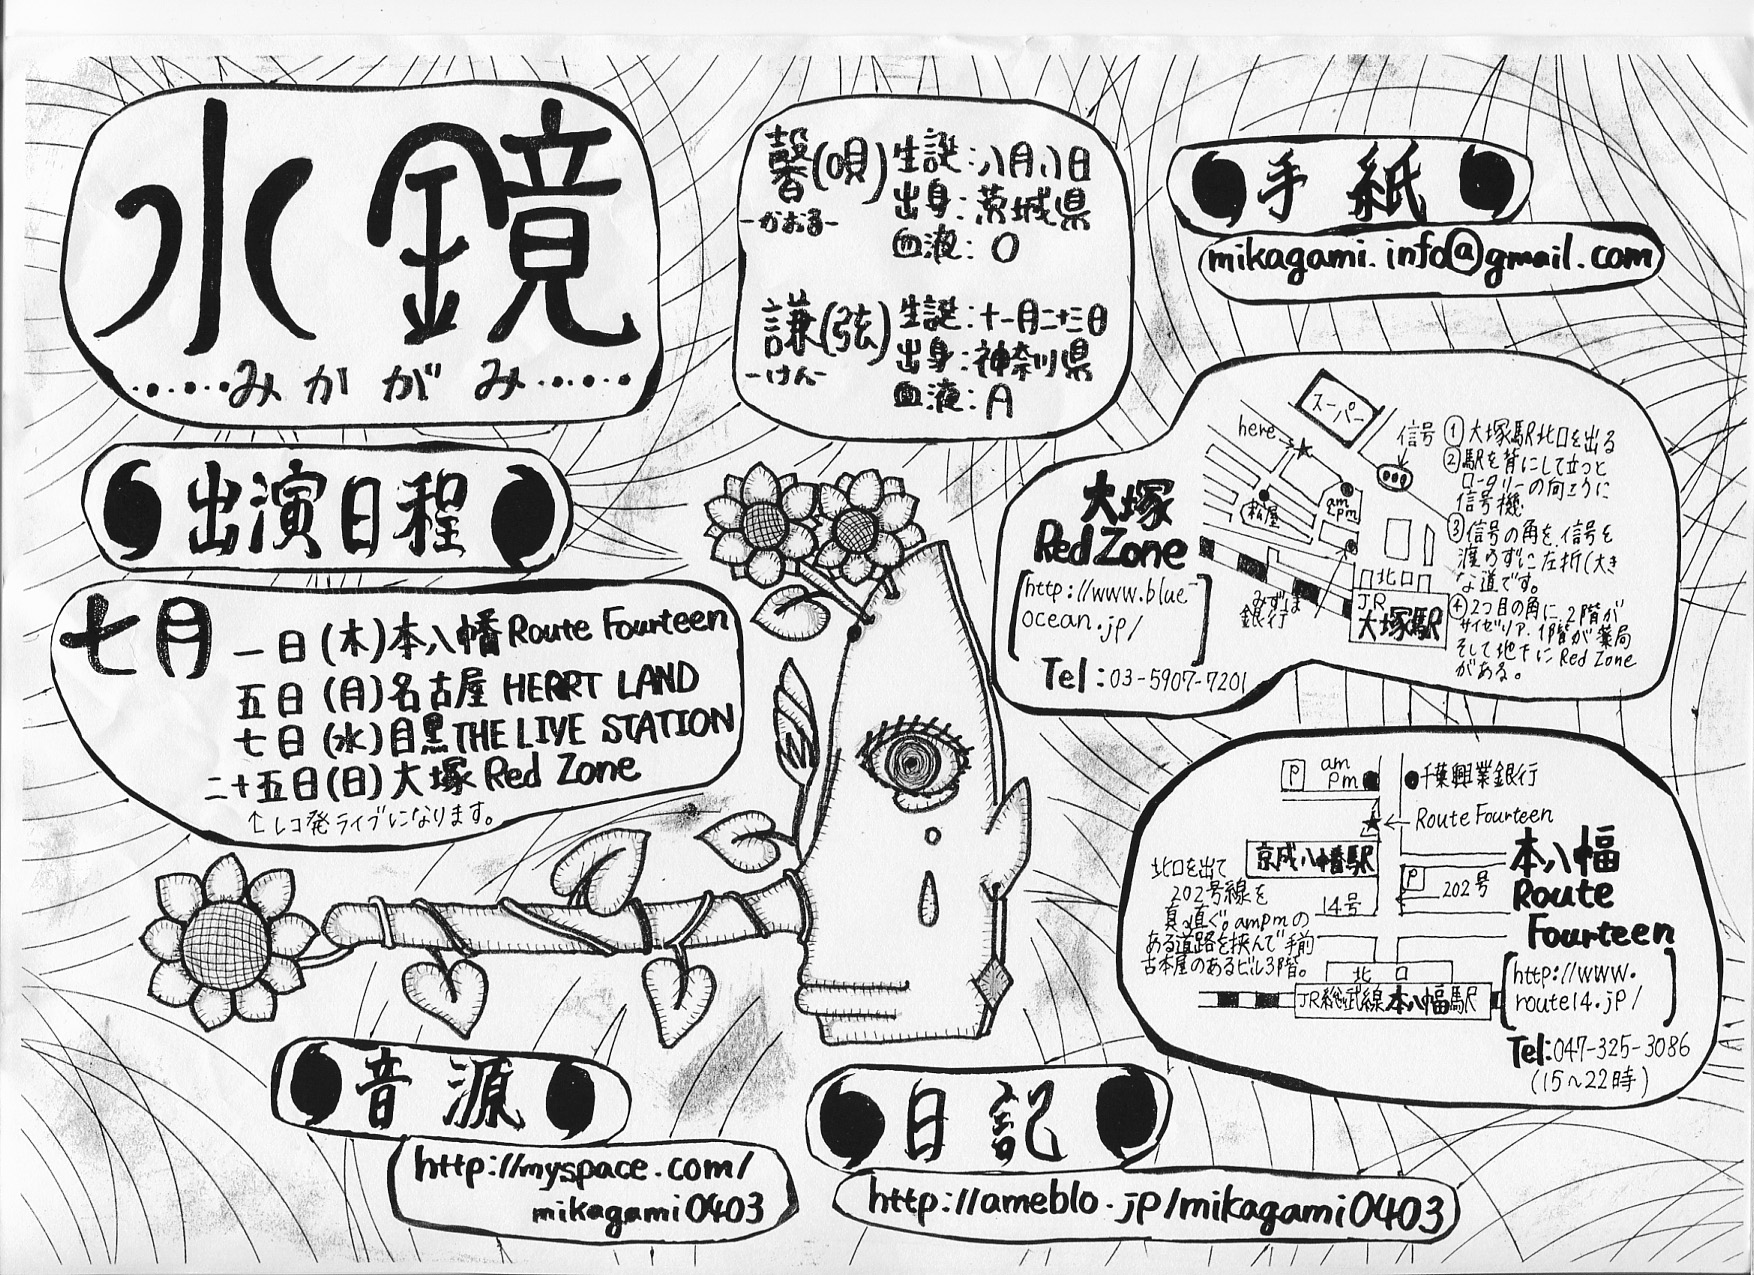 水鏡
……みかがみ……
出演日程
七月
一日(木)本八幡 Route Fourteen
五日(月)名古屋 HERRT LAND
七日(水)目黒 THE LIVE STATION
二十五日(日)大塚 Red Zone
↑レコ発ライブになります。
馨(唄)
-かおる-
生誕:八月八日
出身:茨城県
血液:O
謙(弦)
-けん-
生誕:十一月二十三日
出身:神奈川県
血液:A
手紙
mikagami.info@gmail.com
大塚
Red Zone
[http://www.blue-
ocean.jp/]
Tel:03-5907-7201
スーパー
here
信号
松屋
am
pm
みずほ
銀行
北口
JR
大塚駅
①大塚駅北口を出る
②駅を背にして立つと
ロータリーの向こうに
信号機
③信号の角を、信号を
渡らずに左折(大き
な道です。
④2つ目の角に、2階が
サイゼリア、1階が薬局
そして地下にRed Zone
がある。
P
am
pm
千葉興業銀行
Route Fourteen
京成八幡駅
P
202号
14号
北口を出て
202号線を
真っ直ぐ。ampmの
ある道路を挟んで手前
古本屋のあるビル3階。
北口
JR総武線本八幡駅
本八幡
Route
Fourteen
[http://www.
route14.jp/]
Tel:047-325-3086
(15~22時)
音源
http://myspace.com/
mikagami0403
日記
http://ameblo.jp/mikagami0403